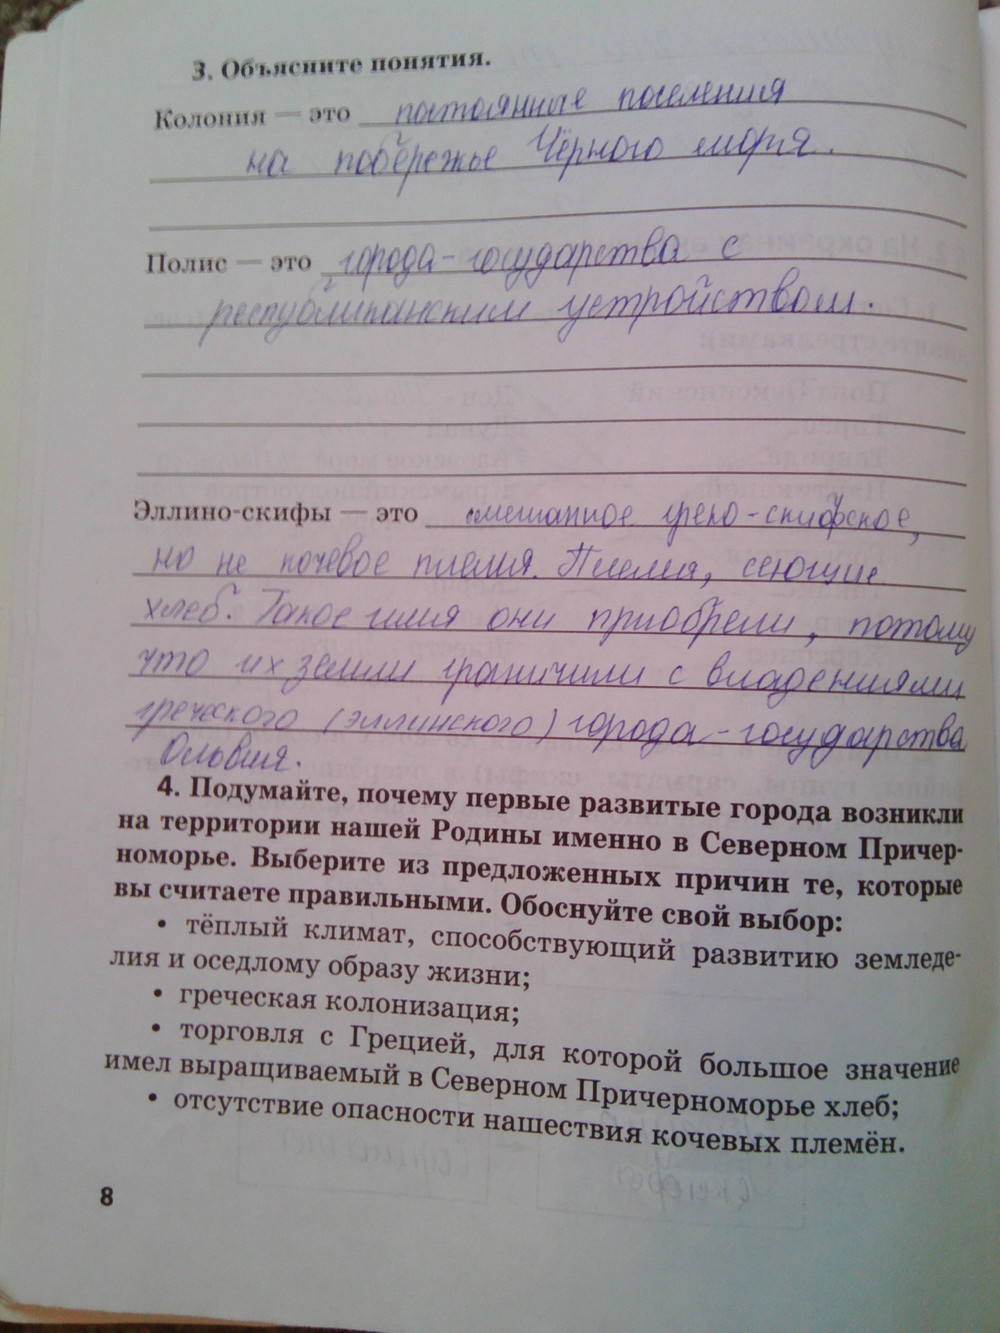 3. Объясните понятия.
Колония — это постоянные поселения
на побережье Чёрного моря.
Полис — это города-государства с
республиканским устройством.
Эллино-скифы — это смешанное греко-скифское,
но не кочевое племя. Племя, сеющие
хлеб. Такое имя они приобрели, потому
что их земли граничили с владениями
греческого (эллинского) города-государства
Ольвия.
4. Подумайте, почему первые развитые города возникли
на территории нашей Родины именно в Северном Причер-
номорье. Выберите из предложенных причин те, которые
вы считаете правильными. Обоснуйте свой выбор:
• тёплый климат, способствующий развитию земледе-
лия и оседлому образу жизни;
• греческая колонизация;
• торговля с Грецией, для которой большое значение
имел выращиваемый в Северном Причерноморье хлеб;
• отсутствие опасности нашествия кочевых племён.
8